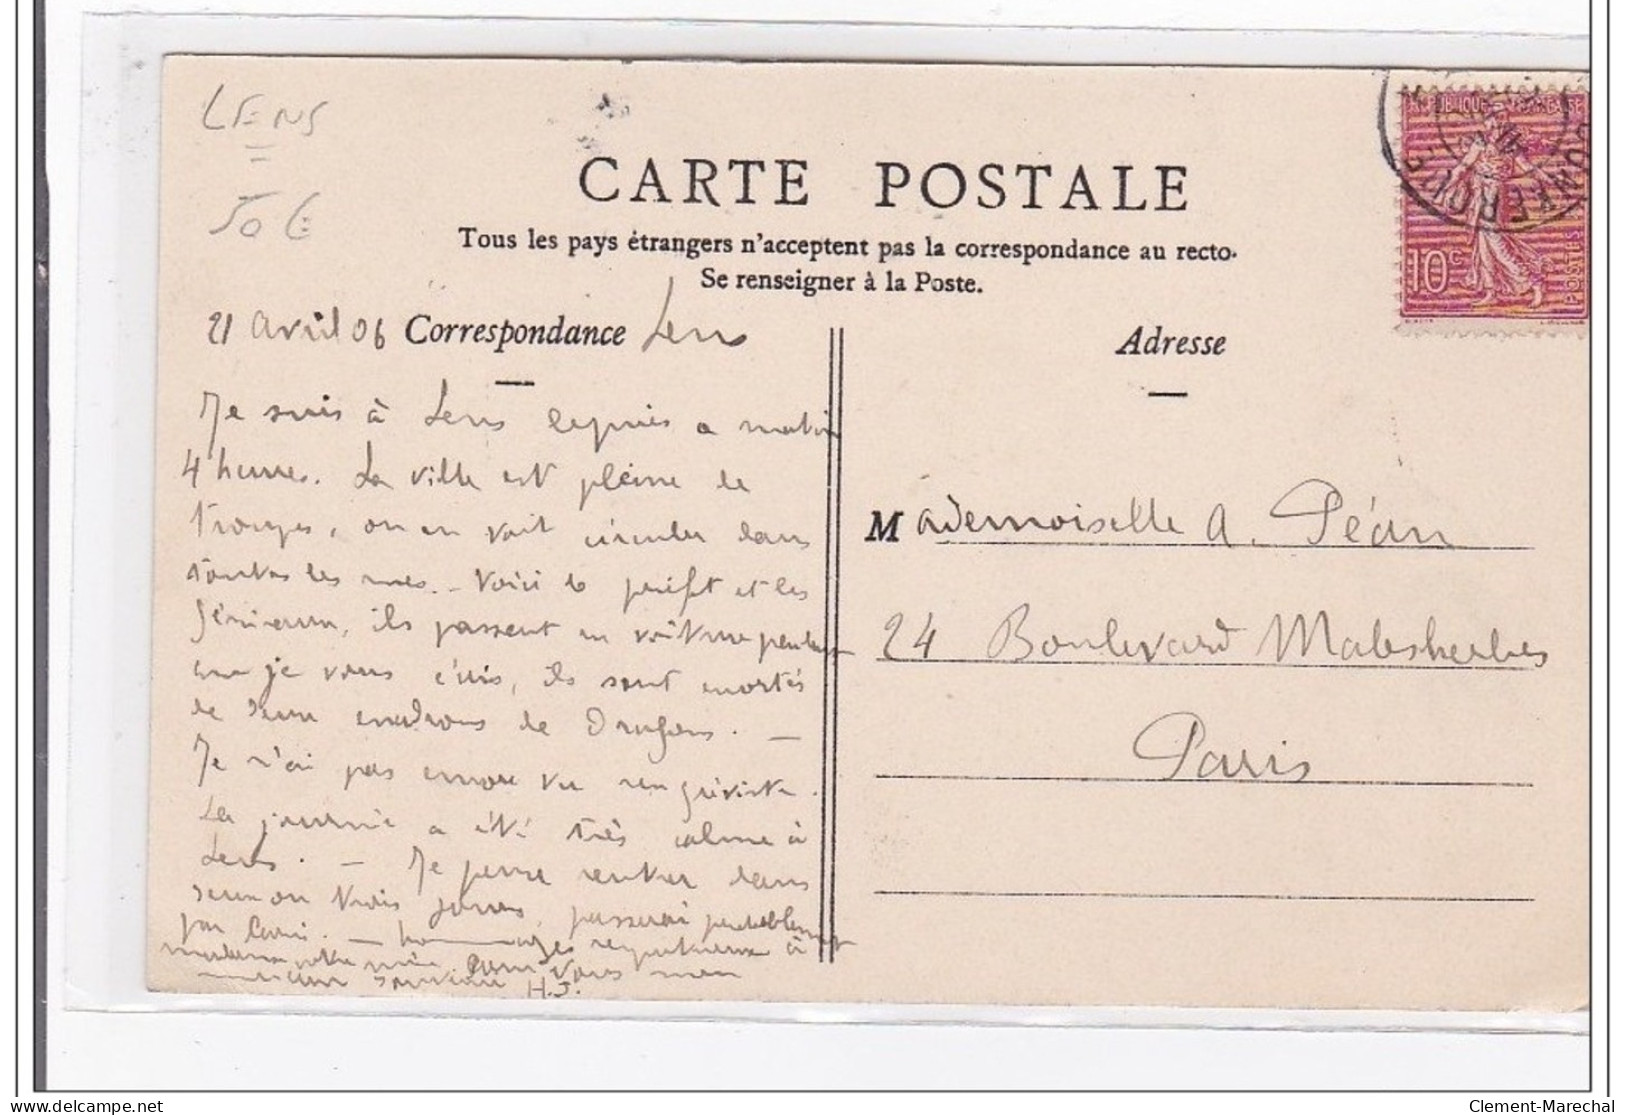 LENS
50 €
CARTE POSTALE
Tous les pays étrangers n'acceptent pas la correspondance au recto.
Se renseigner à la Poste.
21 avril 06 Correspondance Lens
Adresse
Je suis à Lens depuis ce matin
4 heures. La ville est pleine de
troupes, on en voit circuler dans
toutes les rues. – Voici le préfet et les
généraux, ils passent en voiture pendant
que je vous écris, ils sont escortés
de deux escadrons de Dragons. –
Je n'ai pas encore vu un gréviste.
La journée a été très calme à
Lens. – Je pense rentrer dans
deux ou trois jours, passerai probablement
par Paris. – hommages respectueux à
madame votre mère Pour vous mon
meilleur souvenir H.J.
Mademoiselle A. Péan
24 Boulevard Malesherbes
Paris
REPUBLIQUE FRANÇAISE
10c
POSTES
DUNKERQUE
Clement-Marechal